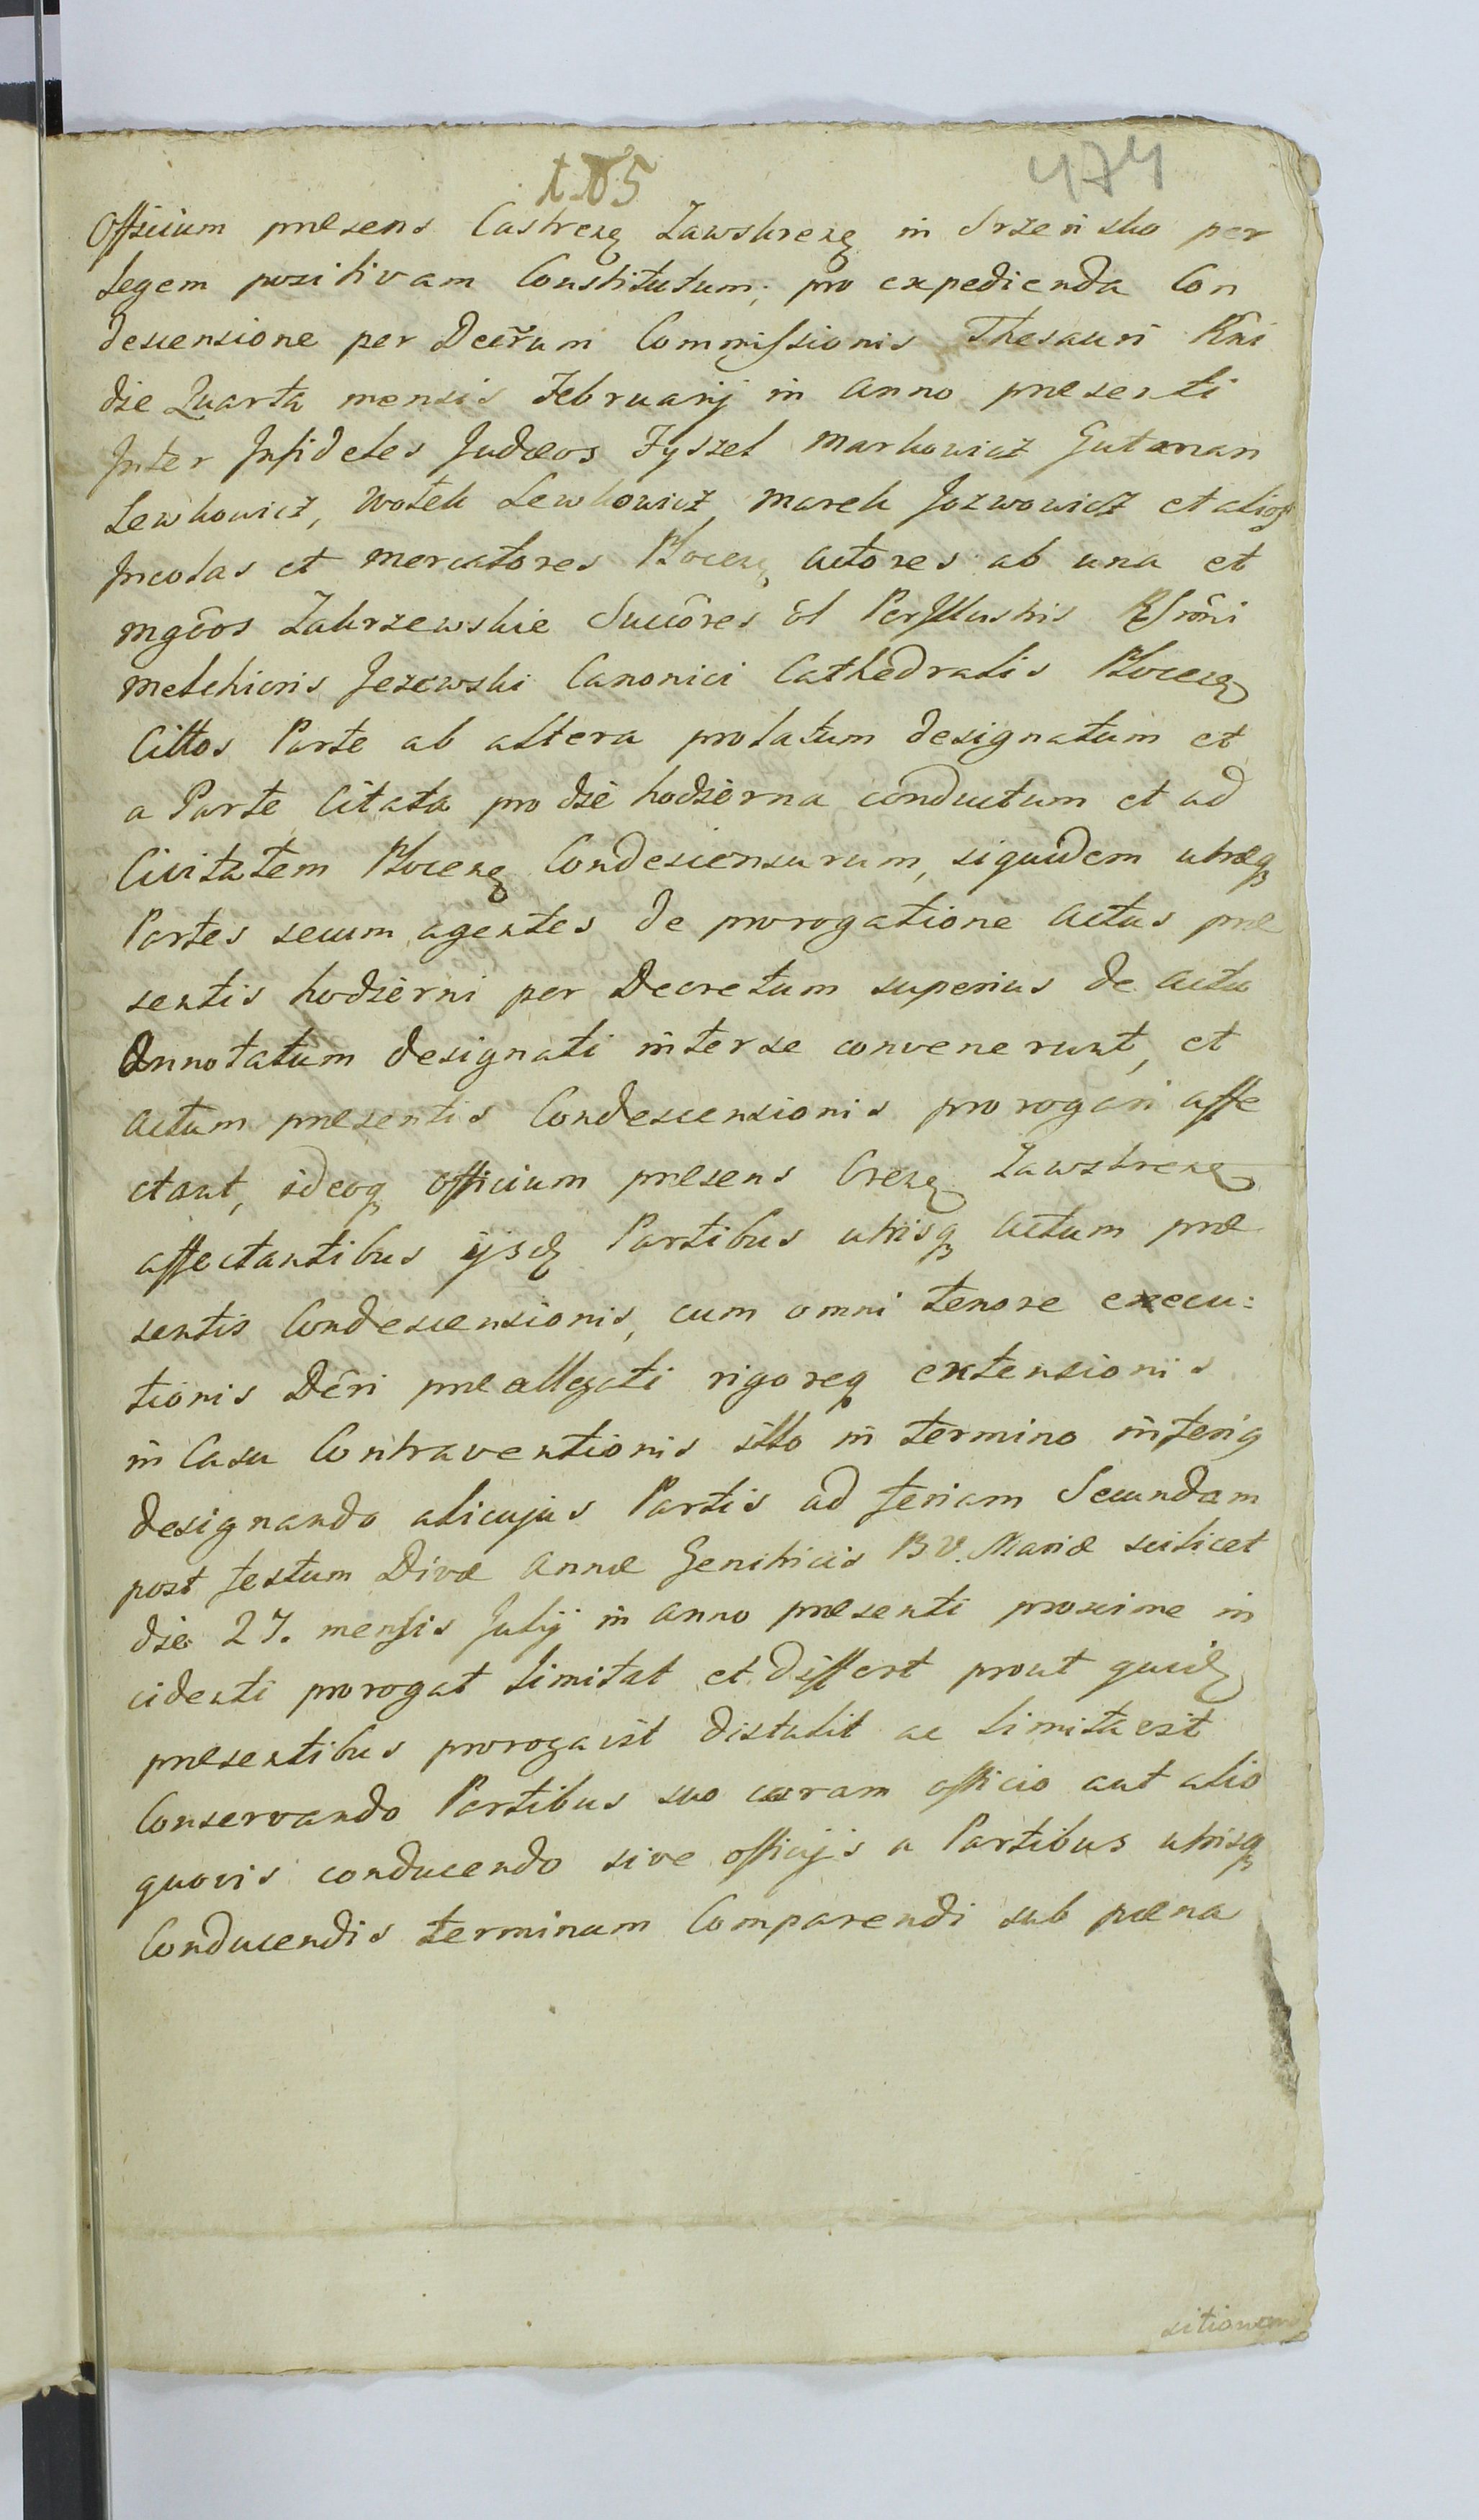 474
Officium præsens Castrenę Zawskrenę in Srzeńsko per
Legem pozitivam Constitutum, pro expedienda Con
descensione per Decr̃um Commissionis Thesauri Rñi
die Quarta mensis Februarij in Anno præsenti
Inter Infideles Judæos Fyszel Markowicz Gutman
Lewkowicz, Wołek Lewkowicz, Marek Jozwowicz et alios
Incolas et Mercatores Płocenę Actores ab una et
Mgcos Zakrzewskie Succores ol PerIllustris Rssmi
Melchioris Jezewski Canonici Cathedralis Płocenę
Cittos Parte ab altera prolatum designatum et
a Parte Citata pro die hodierna conductum et ad
Civitatem Płocenę Condescensurum, siquidem utræq
Partes secum agentes de prorogatione Actus præ
sentis hodierni per Decretum superius de Actu
Annotatum designati inter se convenerunt, et
Actum præsentis Condescensionis prorogari affe
ctant, ideoq Officium præsens Crenę Zawskrenę
affectantibus ijsd Partibus utrisq Actum præ
sentis Condescensionis, cum omni tenore execu:
tionis Dcri præallegati rigoreq extensionis
in Casu Contraventionis illo in termino inferiq
designando alicujus Partis ad feriam Secundam
post festum Divæ Annæ Genitricis B V. Mariæ scilicet
die 27. mensis Julij in Anno præsenti proxime in
cidenti prorogat limitat et differt prout quid
præsentibus prorogavit distulit ac limitavit
Conservando Partibus suo coram officio aut alio
quovis conducendo sive officijs a Partibus utrisq
Conducendis terminum Comparendi sub pæna
sitionem